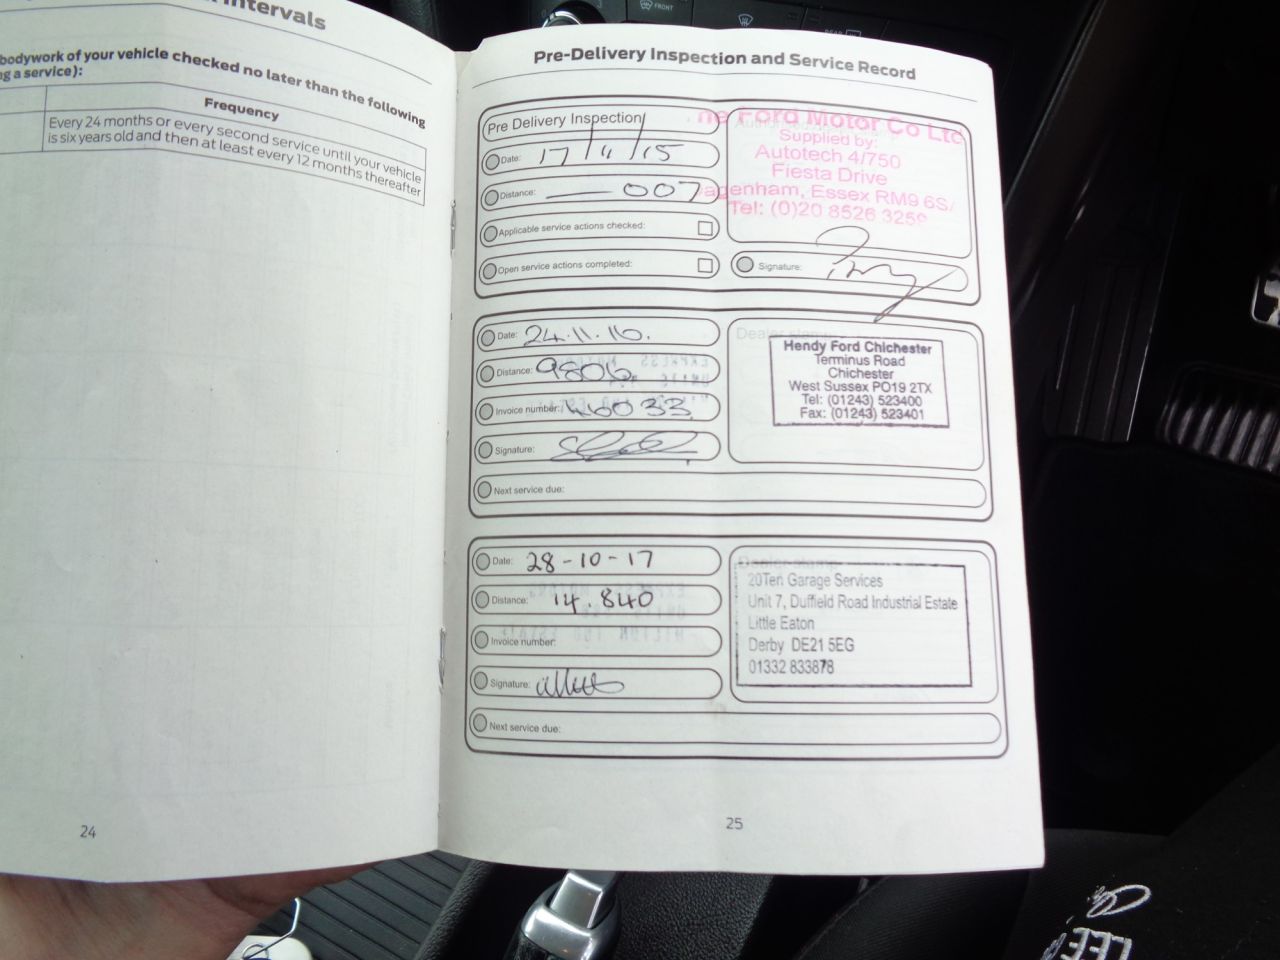 Intervals
bodywork of your vehicle checked no later than the following
g a service):
Frequency
Every 24 months or every second service until your vehicle
is six years old and then at least every 12 months thereafter
24
Pre-Delivery Inspection and Service Record
Pre Delivery Inspection
Date: 17/11/15
Distance: 007
Applicable service actions checked:
Open service actions completed:
he Ford Motor Co Ltd
Supplied by:
Autotech 4/750
Fiesta Drive
agenham, Essex RM9 6S
Tel: (0)20 8526 3259
Signature:
Date: 24.11.16.
Distance: 9806
Invoice number: 46033
Signature:
Next service due:
Dealer stamp
Hendy Ford Chichester
Terminus Road
Chichester
West Sussex PO19 2TX
Tel: (01243) 523400
Fax: (01243) 523401
Date: 28-10-17
Distance: 14.840
Invoice number:
Signature:
Next service due:
Dealer stamp
20Ten Garage Services
Unit 7, Duffield Road Industrial Estate
Little Eaton
Derby DE21 5EG
01332 833878
25
FRONT